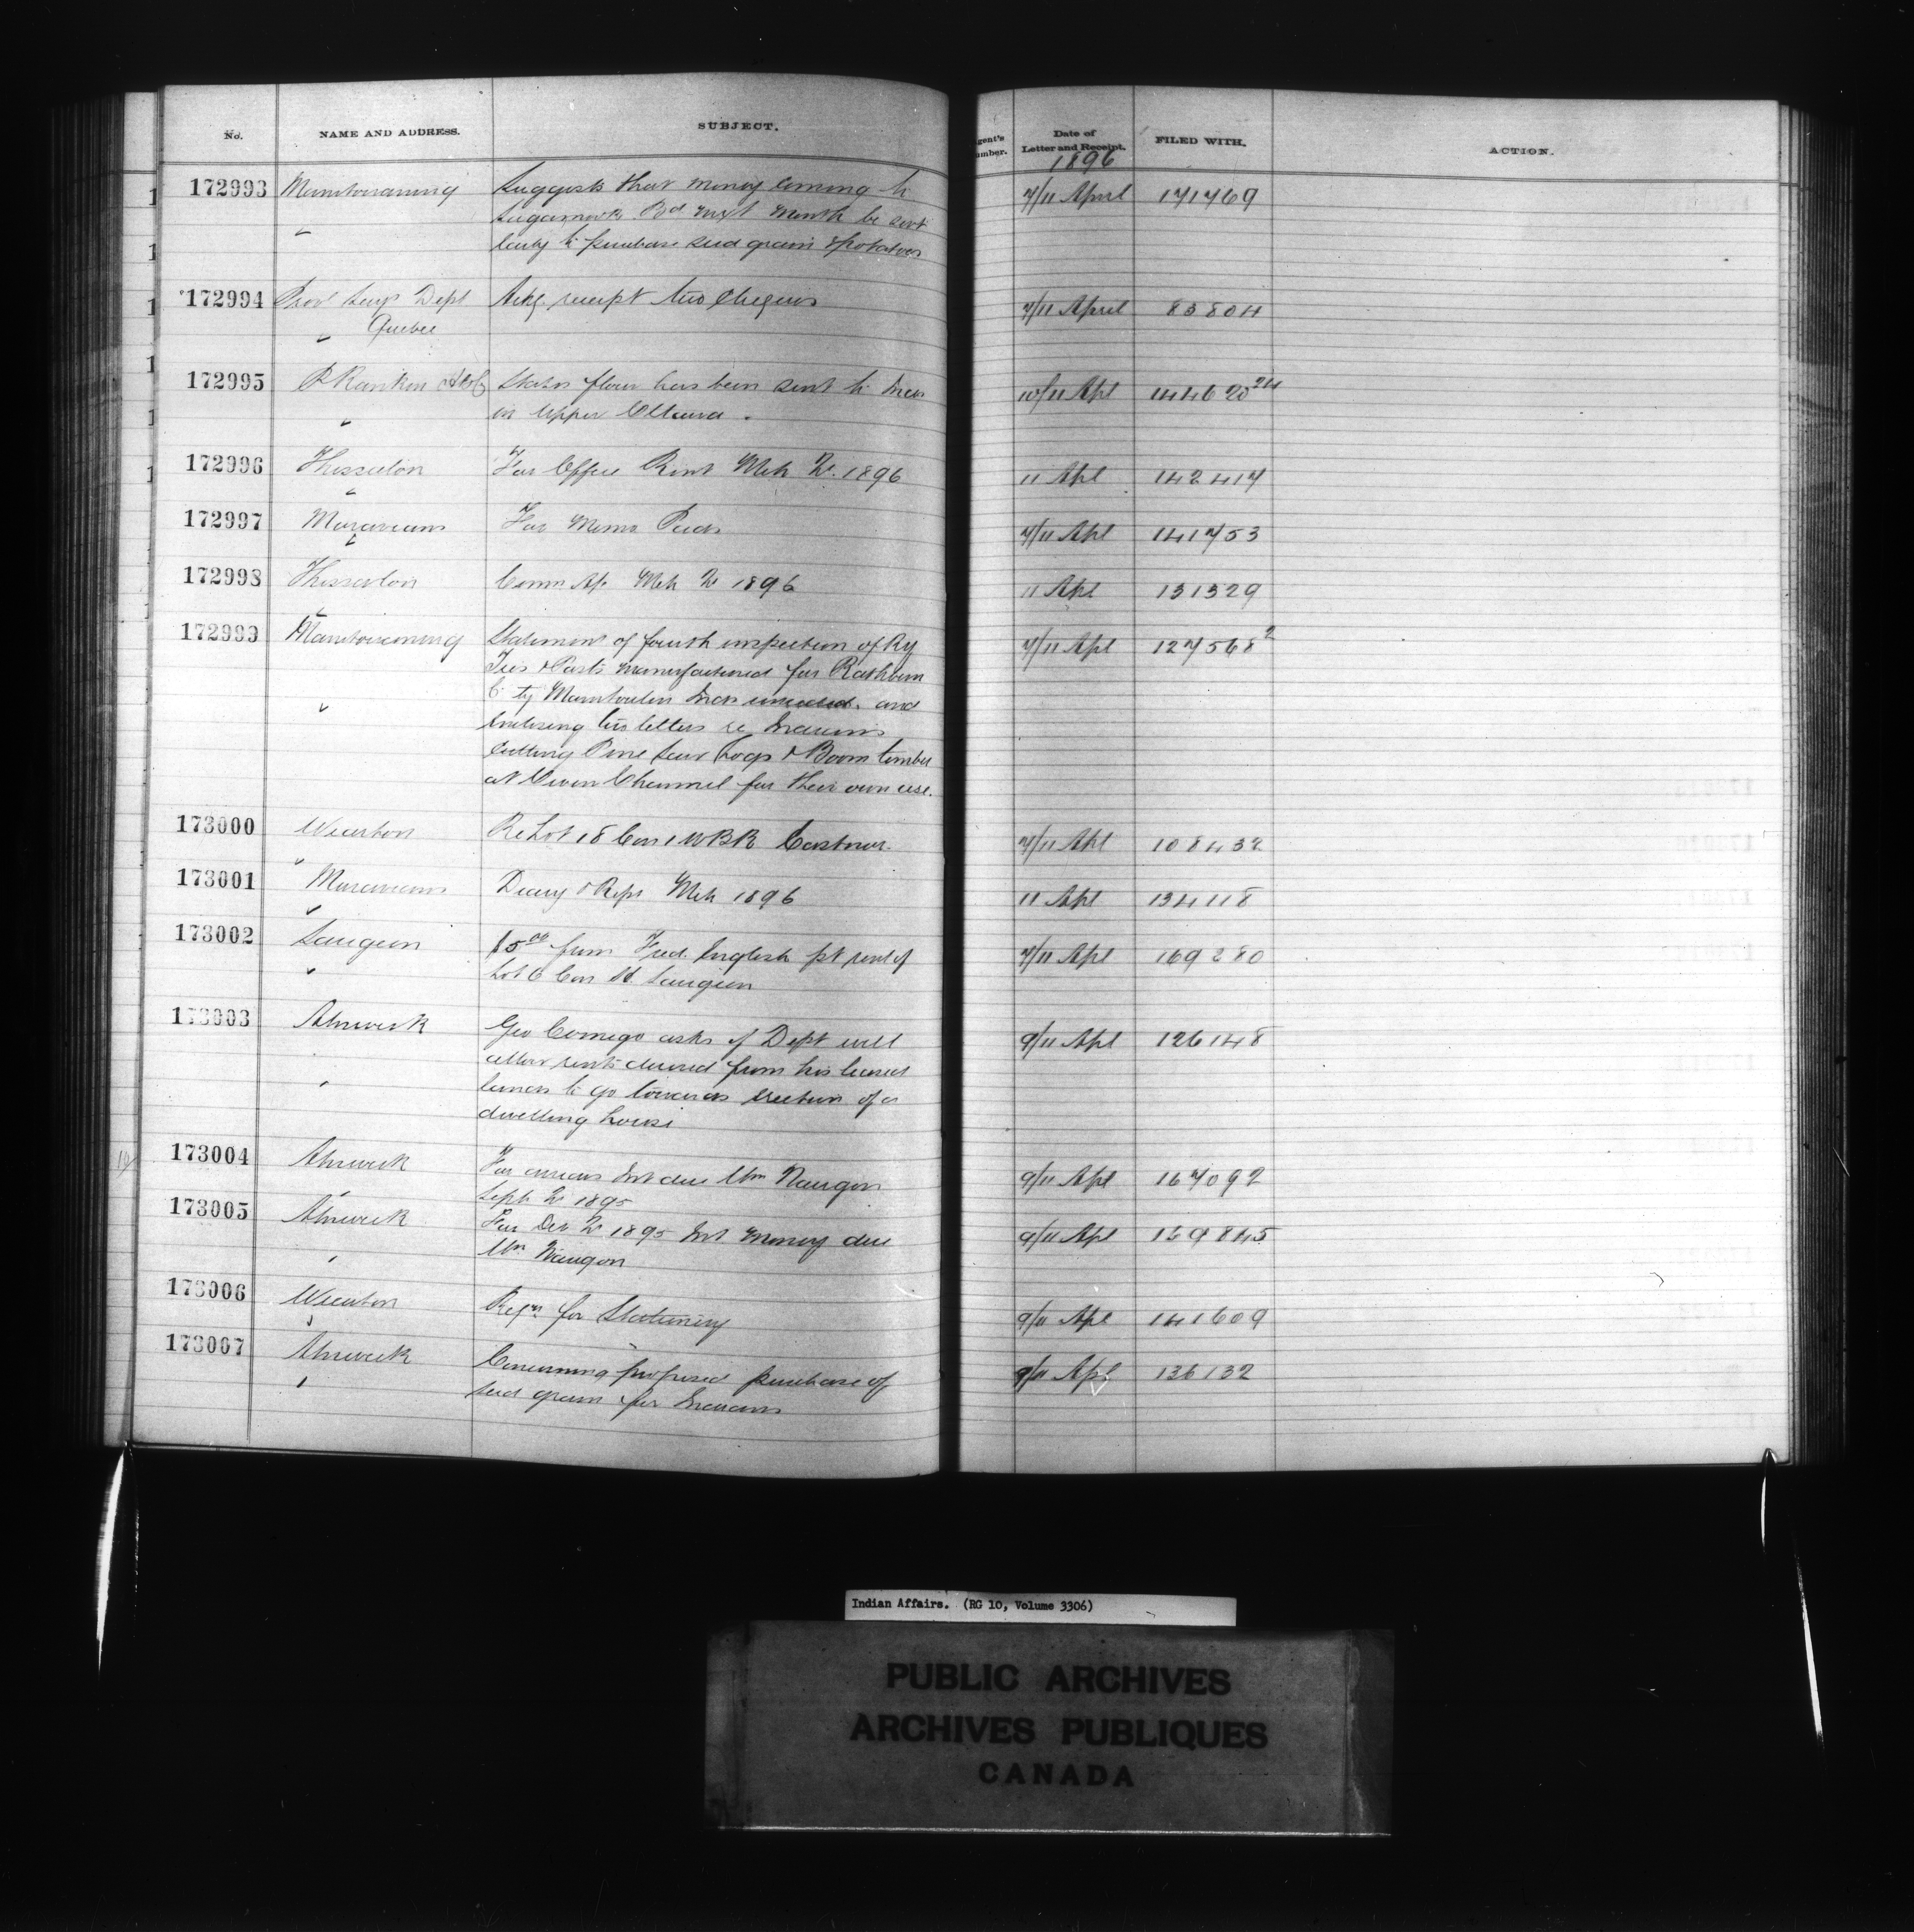 No. NAME AND ADDRESS. SUBJECT. Agent's Number. Date of Letter and Receipt. FILED WITH. ACTION.
1896
172993 Manitowaning Suggests that money coming to 7/11 April 171769
Band next month be sent
early to purchase seed grain & potatoes
172994 Prov Secy's Dept Ackg receipt two cheques 7/11 April 83804
Quebec
172995 P Rankin States flour has been sent to Inds 10/11 Apl 144620 24
in Upper Ottawa.
172996 Thessalon For Office Rent Mch Qr. 1896 11 Apl 142417
172997 Moravians For Memo Pads 7/11 Apl 141753
172998 Thessalon Comn A/c Mch Qr 1896 11 Apl 131329
172999 Manitowaning Statement of fourth inspection of Ry 7/11 Apl 127568 2
Ties & Posts manufactured for Rathbun
Co by Manitoulin Inds and
enclosing two letters re Indians
cutting Pine Saw Logs & Boom timber
at Channel for their own use.
173000 Wiarton Re Lot 18 Con 1 W B R Eastnor. 7/11 Apl 108432
173001 Moravians Diary & Rept Mch 1896 11 Apl 134118
173002 Saugeen $5.00 from Fred English pt rent of 7/11 Apl 169280
Lot 6 Con Saugeen
173003 Alnwick Geo Comego asks if Dept will 9/11 Apl 126148
allow rents derived from his leased
lands to go towards erection of a
dwelling house
173004 Alnwick For arrears Int due Wm Naugon 9/11 Apl 167092
Sept Qr 1895
173005 Alnwick For Dec Qr 1895 Int money due 9/11 Apl 169845
Wm Naugon
173006 Wiarton Reqn for Stationery 9/11 Apl 141609
173007 Alnwick Concerning proposed purchase of 9/11 Apl 136132
seed grain for Indians
Indian Affairs. (RG 10, Volume 3306)
PUBLIC ARCHIVES
ARCHIVES PUBLIQUES
CANADA